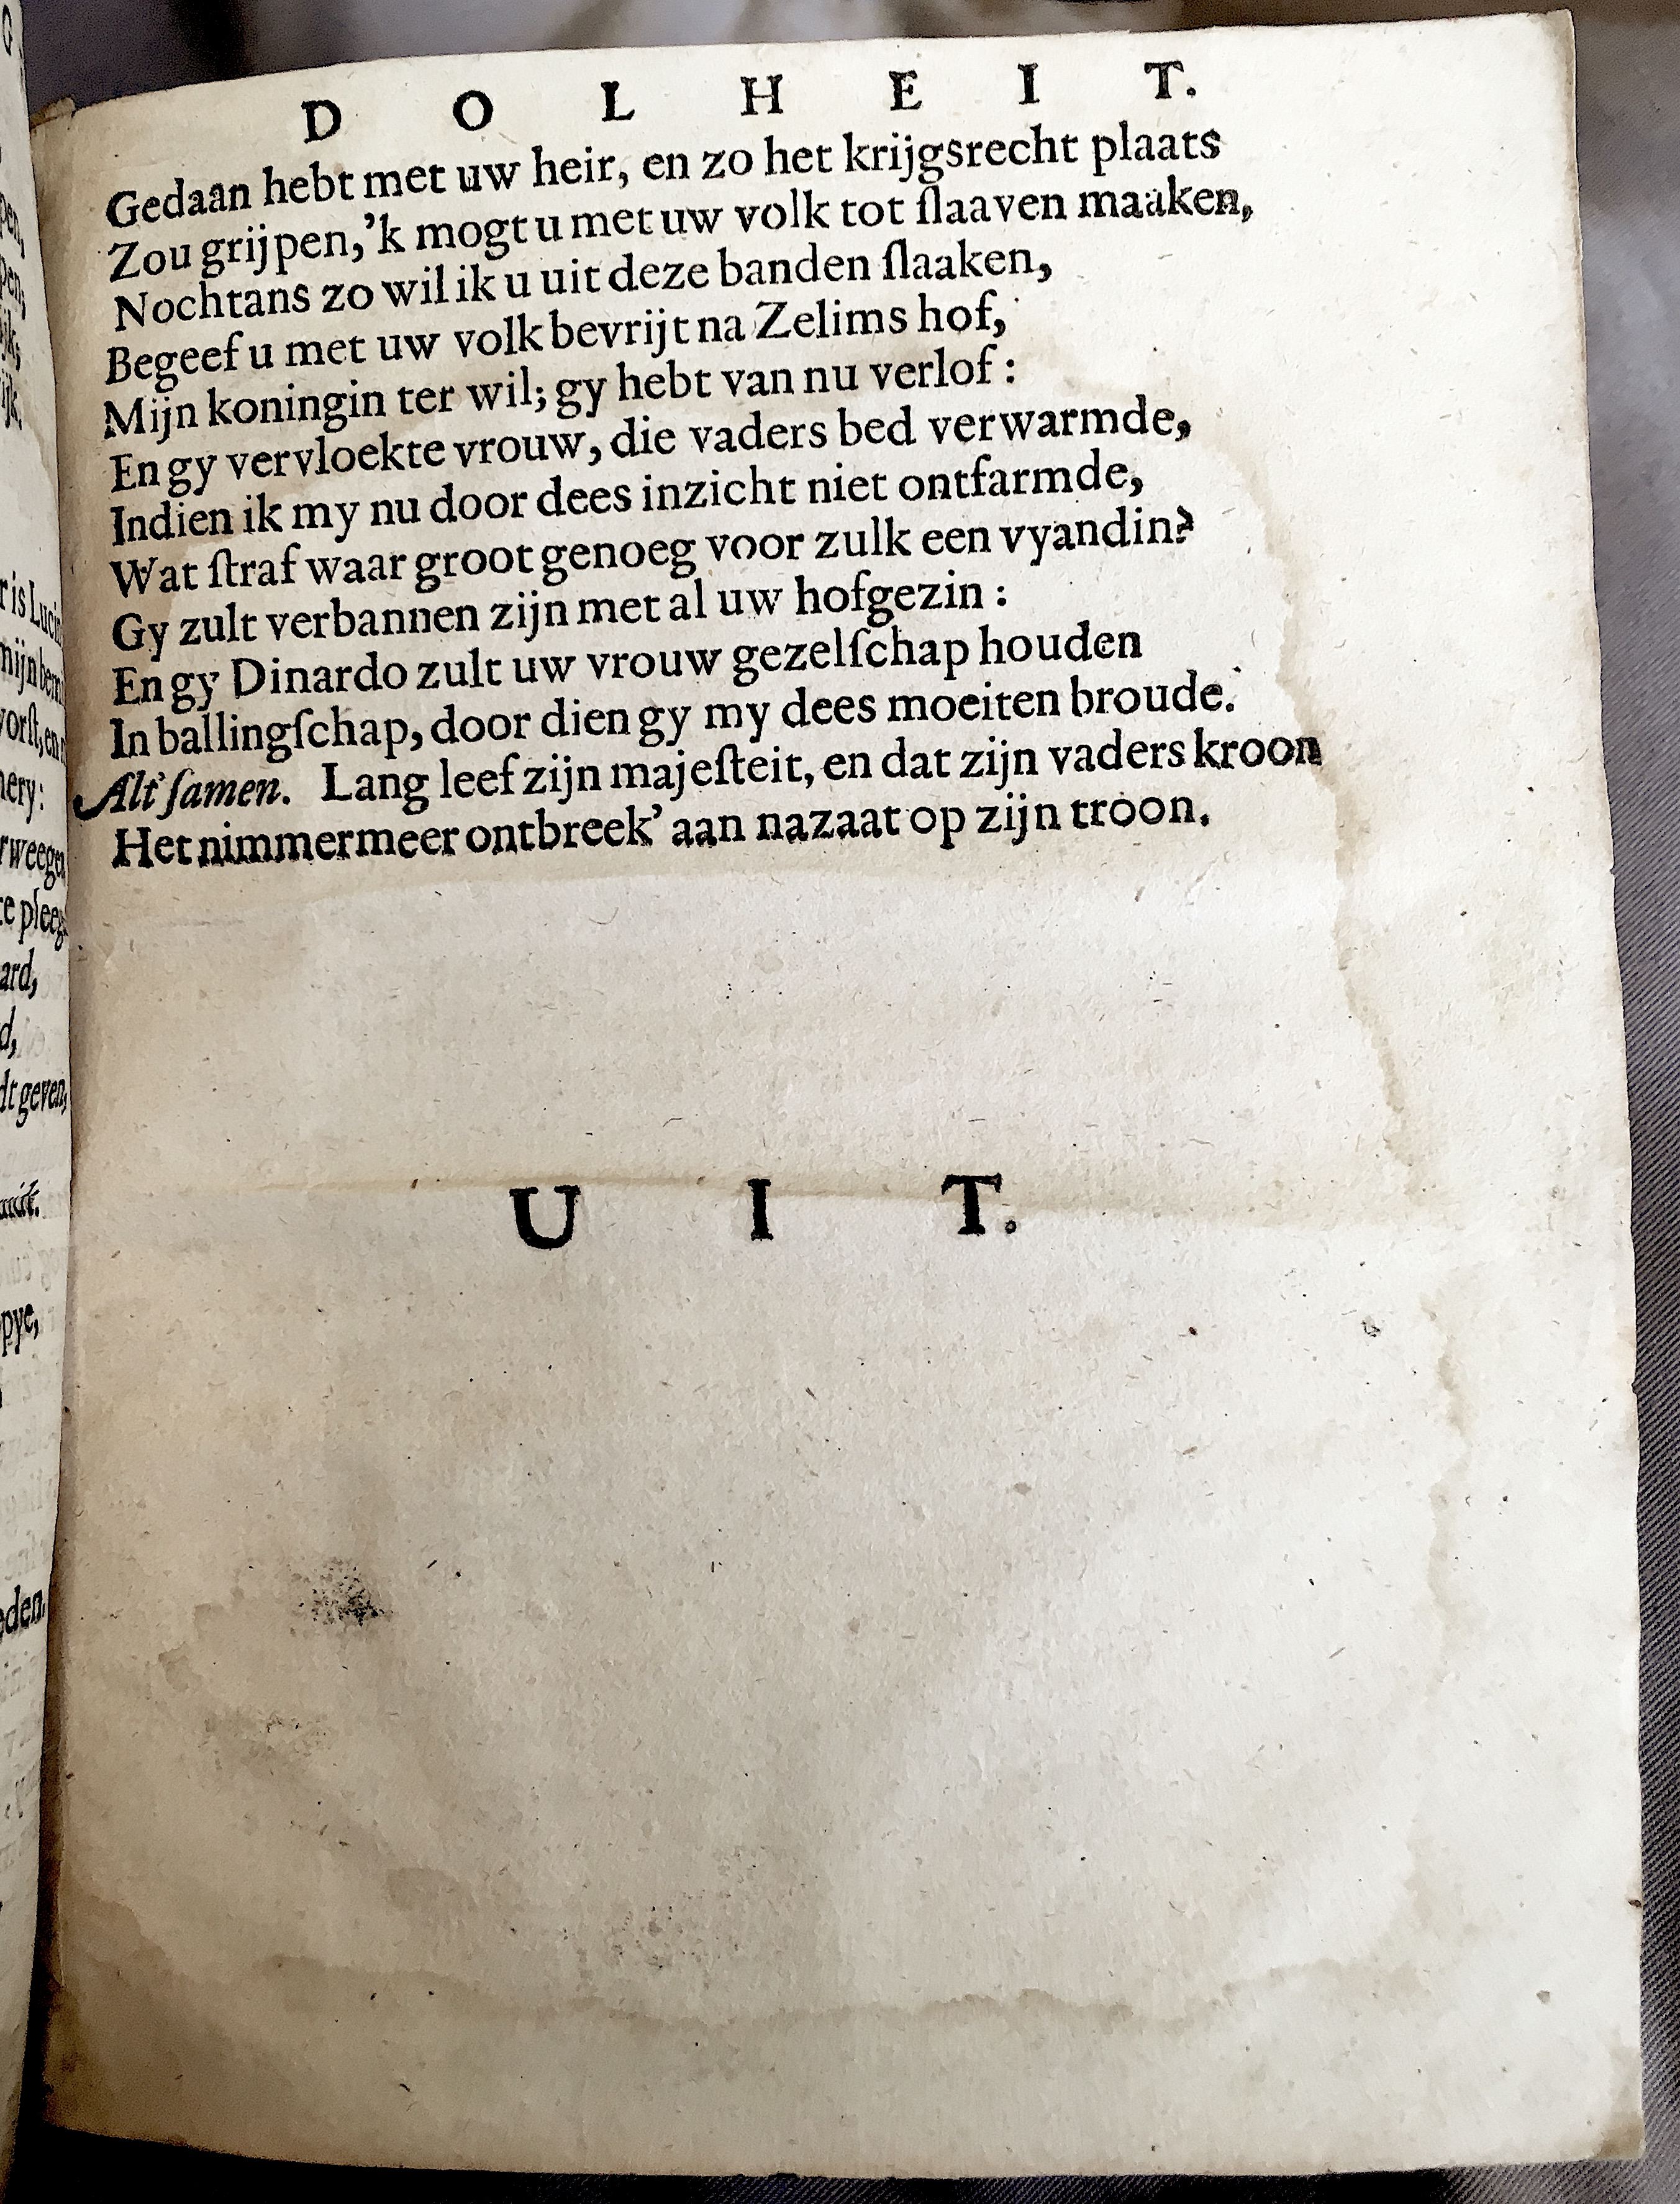 D O L H E I T.
Gedaan hebt met uw heir, en zo het krijgsrecht plaats
Zou grijpen, 'k mogt u met uw volk tot ſlaaven maaken,
Nochtans zo wil ik u uit deze banden ſlaaken,
Begeef u met uw volk bevrijt na Zelims hof,
Mijn koningin ter wil; gy hebt van nu verlof:
En gy vervloekte vrouw, die vaders bed verwarmde,
Indien ik my nu door dees inzicht niet ontfarmde,
Wat ſtraf waar groot genoeg voor zulk een vyandin?
Gy zult verbannen zijn met al uw hofgezin:
En gy Dinardo zult uw vrouw gezelſchap houden
In ballingſchap, door dien gy my dees moeiten broude.
Alt'ſamen. Lang leef zijn majeſteit, en dat zijn vaders kroon
Het nimmermeer ontbreek' aan nazaat op zijn troon.
U I T.